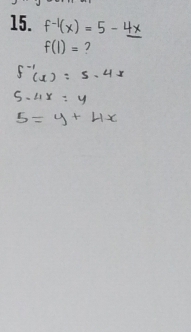 15. f⁻¹(x) = 5 - 4x
f(1) = ?
f⁻¹(x) = 5-4x
5-4x = y
5 = y + 4x